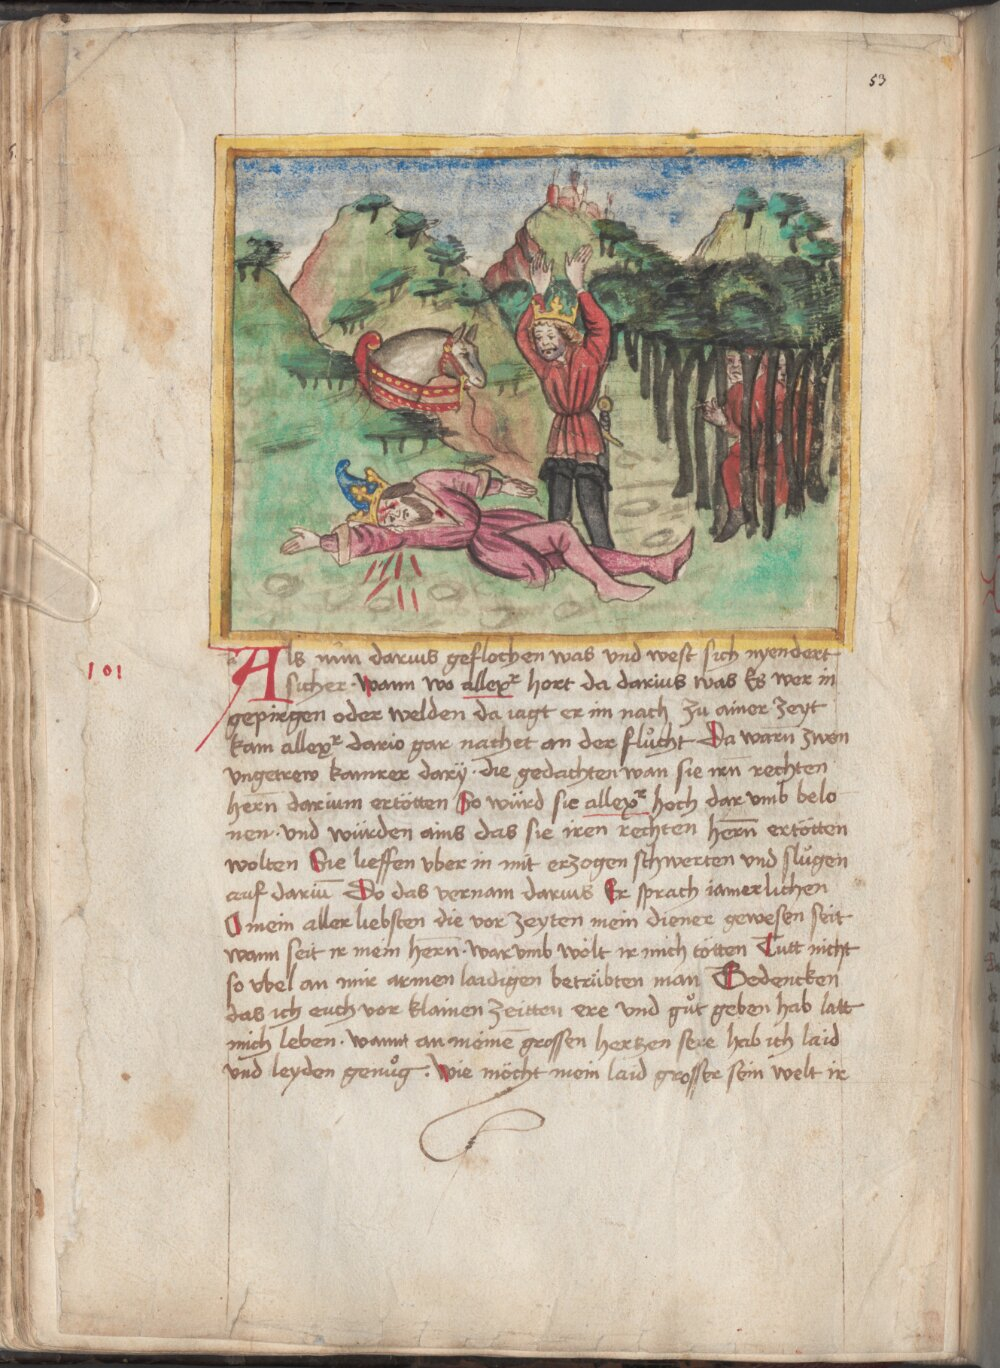 53
101
Als nün darius geflochen was und west sich nyendert
sicher. Wann wo allexr hort da darius was Es wer in
gepirgen oder welden da iagt er im nach zu ainer zeyt
kam allexr dario gar nachet an der flucht Da warn zwen
vngetrew kamrer darÿ. die gedachten wan sie irn rechten
hern̄ darium ertötten So würd sie allexr hoch dar vmb belo
nen. vnd würden ains das sie iren rechten hern̄ ertötten
wolten Sie lieffen vber in mit erzogen schwerten vnd slůgen
auf dariū Do das vernam darius Er sprach iamerlichen
O mein aller liebsten die vor zeyten mein diener gewesen seit
wann seit ir mein hern̄. war vmb wölt ir mich tötten Tutt nicht
so vbel an mir armen laidigen betrübten man Bedencken
das ich euch vor klainen zeitten ere vnd gůt geben hab latt
mich leben. wannt an meinē grossen hertzen sere hab ich laid
vnd leyden genůg. Wie möcht mein laid grosser sein welt ir